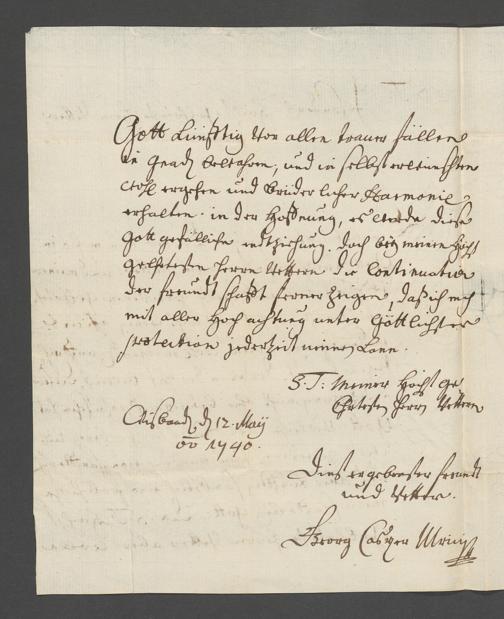 Gott künfftig vor allen trauer fällen
in gnaden bewahren, und in selbst erwünschten
wohl ergehen und brüderlicher Harmonie
erhalten. in der Hoffnung, es werde diese
Gott gefällige endtziehung. doch bey meinem Höchst
geehrtesten Herrn Vettern die Continuation
der freundtschafft ferner zeigen, daß ich mich
mit aller Hochachtung unter Göttlicher
protection jederzeit nennen kann.
S: T: Meiner Höchst ge
Ehrtesten Herrn Vettern
d 12. May
1740.
Dienst ergebenster freundt
und Vetter.
Georg Casper